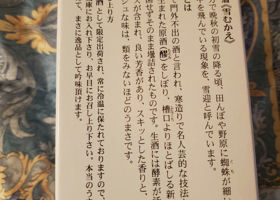 酒(雪むかえ)
方で晩秋の初雪の降る頃、田んぼや野原に蜘蛛が細
を飛んでいる現象を、雪迎と呼んでいます。
は
門外不出の酒と言われ、寒造りで名人芸的な技法
生まれた原酒(醪)をしぼり、槽口よりほとばしる新
せずそのまま壜詰されたものです。生酒には酵素が
が含まれ、良い芳香があり、スキッとした香りと、
ュな味は、類をみないほどのうまさです。
上り方
酒として限定出荷され、常に冷温に保たれておりますので、
庫にお入れ下さり、お早目にお召し上り下さい。本当のう
て、まさに逸品として吟味頂けます。